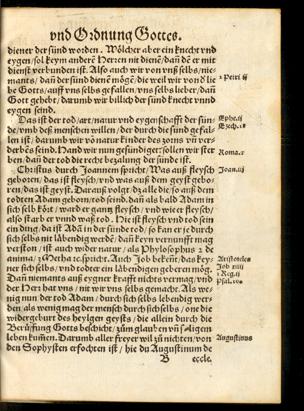 vnd Ordnung Gottes.
diener der sünd worden. Wölcher aber ein knecht vnd
eygen/ sol keym andern Herzen nit dienen/ dañ dē er mit
dienst verbunden ist. Also auch wir von vnß selbs/ nie-
mants/ dañ der sünd dienē mögē/ die weil wir von d̄ lie
be Gotts/ auff vns selbs gefallen/ vns selbs lieber/ dañ
Gott gehebt/ darumb wir billich der sünd knecht vnnd
eygen seind.
2 Petri ij
Das ist der tod/ art/ natur vnd eygenschafft der sün-
de/ vmb deß menschen willen/ der durch die sünd gefal-
len ist/ darumb wir vō natur kinder des zorns vn̄ ver-
derbēs seind. Hand wir nun gesündiget/ sollen wir ster
ben/ dañ der tod die recht bezalung der sünde ist.
Ephe.ij
Ezech.18
Roma.
Christus durch Joannem spricht/ Was auß fleysch
geboren/ das ist fleysch/ vnd was auß dem geyst gebo-
ren/ das ist geyst. Darauß volgt/ dz alle die/ so auß dem
todten Adam geborn/ tod seind. dañ als bald Adam in
sich selb kört/ ward er gantz fleysch/ vnd wie er fleysch/
also starb er vnnd waß tod. Nie ist fleysch vnd tod sein
ein ding/ da ist Adā in der sünde tod/ so kan er je durch
sich selbs nit läbendig werdē/ dañ kein vernunfft mag
verston/ ist auch weder natur/ als Phylosophus 2 de
anima/ z Metha zc. spricht. Auch Job bekent/ das key-
ner sich selbs/ vnd todter ein läbendigen geberen mög.
Dañ niemants auß eygner krafft nichts vermag/ vnd
der Herr hat vns/ nit wir vns selbs gemacht. Als we-
nig nun der tod Adam/ durch sich selbs lebendig wer-
den/ als wenig mag der mensch durch sich selbs/ one die
widergeburt des heylgen geysts/ die allein durch die
Berüffung Gotts beschicht/ zum glauben vn̄ säligem
leben kummen. Darumb aller freyer wil zů nichten/ von
den Sophysten erfochten ist/ hie du Augustinum de
Joan.iij
Aristoteles
Job xiiij
1 Reg.ij
Augustinus
B
eccle.